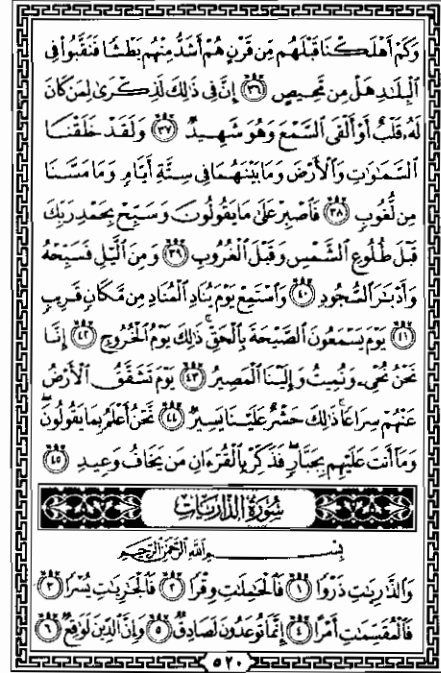 وَكَمْ أَهْلَكْنَا قَبْلَهُم مِّن قَرْنٍ هُمْ أَشَدُّ مِنْهُم بَطْشًا فَنَقَّبُوا۟ فِى
ٱلْبِلَٰدِ هَلْ مِن مَّحِيصٍ ٣٦ إِنَّ فِى ذَٰلِكَ لَذِكْرَىٰ لِمَن كَانَ
لَهُۥ قَلْبٌ أَوْ أَلْقَى ٱلسَّمْعَ وَهُوَ شَهِيدٌ ٣٧ وَلَقَدْ خَلَقْنَا
ٱلسَّمَٰوَٰتِ وَٱلْأَرْضَ وَمَا بَيْنَهُمَا فِى سِتَّةِ أَيَّامٍ وَمَا مَسَّنَا
مِن لُّغُوبٍ ٣٨ فَٱصْبِرْ عَلَىٰ مَا يَقُولُونَ وَسَبِّحْ بِحَمْدِ رَبِّكَ
قَبْلَ طُلُوعِ ٱلشَّمْسِ وَقَبْلَ ٱلْغُرُوبِ ٣٩ وَمِنَ ٱلَّيْلِ فَسَبِّحْهُ
وَأَدْبَٰرَ ٱلسُّجُودِ ٤٠ وَٱسْتَمِعْ يَوْمَ يُنَادِ ٱلْمُنَادِ مِن مَّكَانٍ قَرِيبٍ
٤١ يَوْمَ يَسْمَعُونَ ٱلصَّيْحَةَ بِٱلْحَقِّ ۚ ذَٰلِكَ يَوْمُ ٱلْخُرُوجِ ٤٢ إِنَّا
نَحْنُ نُحْىِۦ وَنُمِيتُ وَإِلَيْنَا ٱلْمَصِيرُ ٤٣ يَوْمَ تَشَقَّقُ ٱلْأَرْضُ
عَنْهُمْ سِرَاعًا ۚ ذَٰلِكَ حَشْرٌ عَلَيْنَا يَسِيرٌ ٤٤ نَّحْنُ أَعْلَمُ بِمَا يَقُولُونَ ۖ
وَمَآ أَنتَ عَلَيْهِم بِجَبَّارٍ ۖ فَذَكِّرْ بِٱلْقُرْءَانِ مَن يَخَافُ وَعِيدِ ٤٥
سُورَةُ الذَّارِيَات
بِسْمِ ٱللَّهِ ٱلرَّحْمَٰنِ ٱلرَّحِيمِ
وَٱلذَّٰرِيَٰتِ ذَرْوًا ١ فَٱلْحَٰمِلَٰتِ وِقْرًا ٢ فَٱلْجَٰرِيَٰتِ يُسْرًا ٣
فَٱلْمُقَسِّمَٰتِ أَمْرًا ٤ إِنَّمَا تُوعَدُونَ لَصَادِقٌ ٥ وَإِنَّ ٱلدِّينَ لَوَٰقِعٌ ٦
٥٢٠